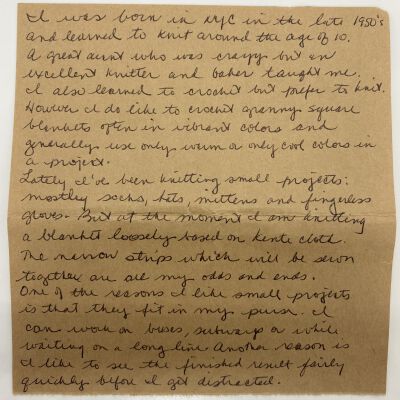 I was born in NYC in the late 1950's
and learned to knit around the age of 10.
A great aunt who was crazy but an
excellent knitter and baker taught me.
I also learned to crochet but prefer to knit.
However I do like to crochet granny square
blankets often in vibrant colors and
generally use only warm or only cool colors in
a project.
Lately I've been knitting small projects:
mostly socks, hats, mittens and fingerless
gloves. But at the moment I am knitting
a blanket loosely based on Kente cloth.
The narrow strips which will be sewn
together are all my odds and ends.
One of the reasons I like small projects
is that they fit in my purse. I
can work on buses, subways or while
waiting on a long line. Another reason is
I like to see the finished result fairly
quickly before I get distracted.